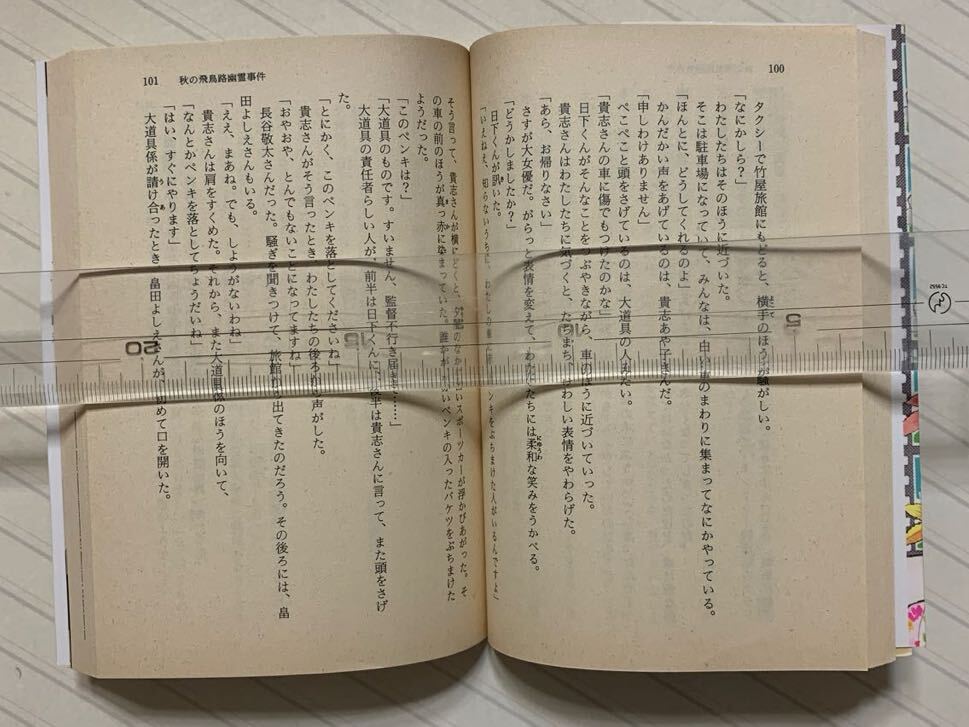 100
タクシーで竹屋旅館にもどると、横手のほうが騒がしい。
「なにかしら?」
わたしたちはそのほうに近づいた。
そこは駐車場になっていて、みんなは、白い車のまわりに集まってなにかやっている。
「ほんとに、どうしてくれるのよ」
かんだかい声をあげているのは、貴志あや子さんだ。
「申しわけありません」
ぺこぺこと頭をさげているのは、大道具の人みたい。
「貴志さんの車に傷でもつけたのかな」
日下くんがそんなことをつぶやきながら、車のほうに近づいていった。
貴志さんはわたしたちに気づくと、たちまち、けわしい表情をやわらげた。
「あら、お帰りなさい」
さすが大女優だ。がらっと表情を変えて、わたしたちには柔和な笑みをうかべる。
「どうかしましたか?」
日下くんが訊いた。
「いえねえ、知らないうちに、わたしの車に赤いペンキをぶちまけた人がいるんですよ」
101 秋の飛鳥路幽霊事件
そう言って、貴志さんが横にどくと、夕闇のなかに白いスポーツカーが浮かびあがった。そ
の車の前のほうが真っ赤に染まっていた。誰かが赤いペンキの入ったバケツをぶちまけた
ようだった。
「このペンキは?」
「大道具のものです。すいません、監督不行き届きで……」
大道具の責任者らしい人が、前半は日下くんに、後半は貴志さんに言って、また頭をさげ
た。
「とにかく、このペンキを落としてくださいね」
貴志さんがそう言ったとき、わたしたちの後ろから声がした。
「おやおや、とんでもないことになってますね」
長谷敬太さんだった。騒ぎを聞きつけて、旅館から出てきたのだろう。その後ろには、畠
田よしえさんもいる。
「ええ、まあね。でも、しようがないわね」
貴志さんは肩をすくめた。それから、また大道具係のほうを向いて、
「なんとかペンキを落としてちょうだいね」
「はい、すぐにやります」
大道具係が請け合ったとき、畠田よしえさんが、初めて口を開いた。
5
10
15
20